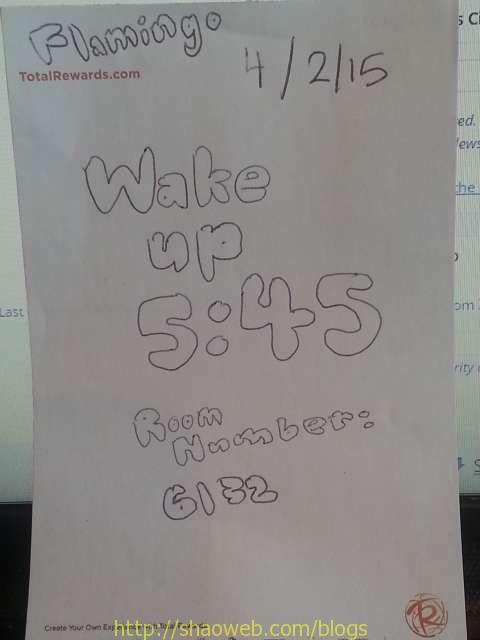 Flamingo
TotalRewards.com
4/2/15
Wake
up
5:45
Room
Number:
6132
Last
ed.
the
Create Your Own
http://shaoweb.com/blogs